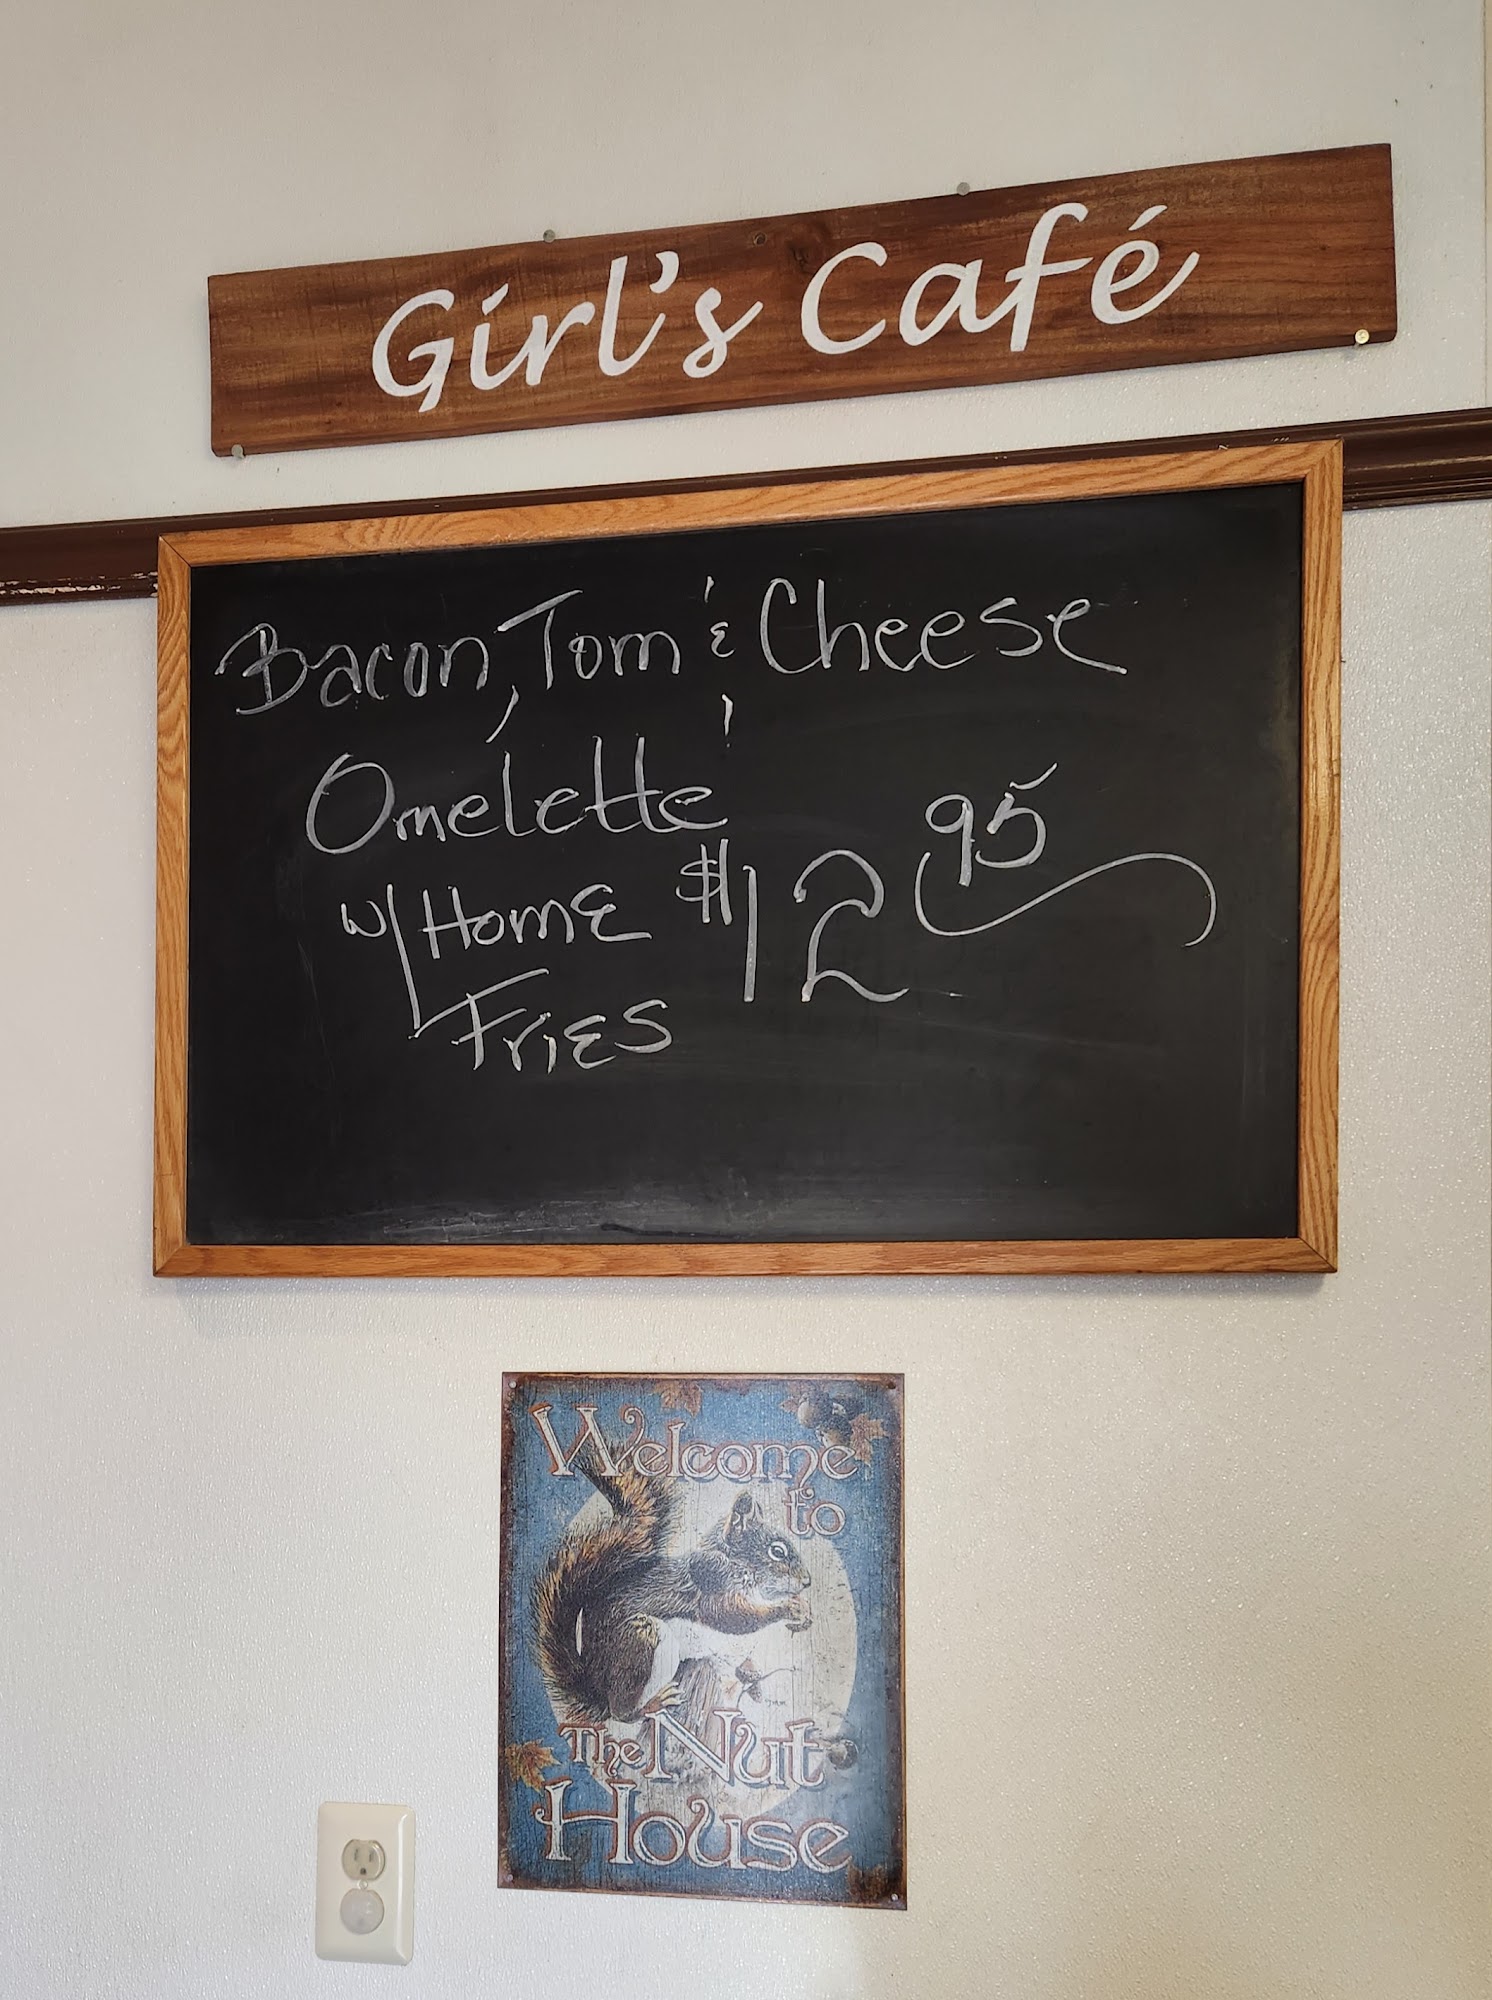 Girl's Café
Bacon, Tom & Cheese
Omelette
w/ Home $12.95
Fries
Welcome
to
The Nut
House